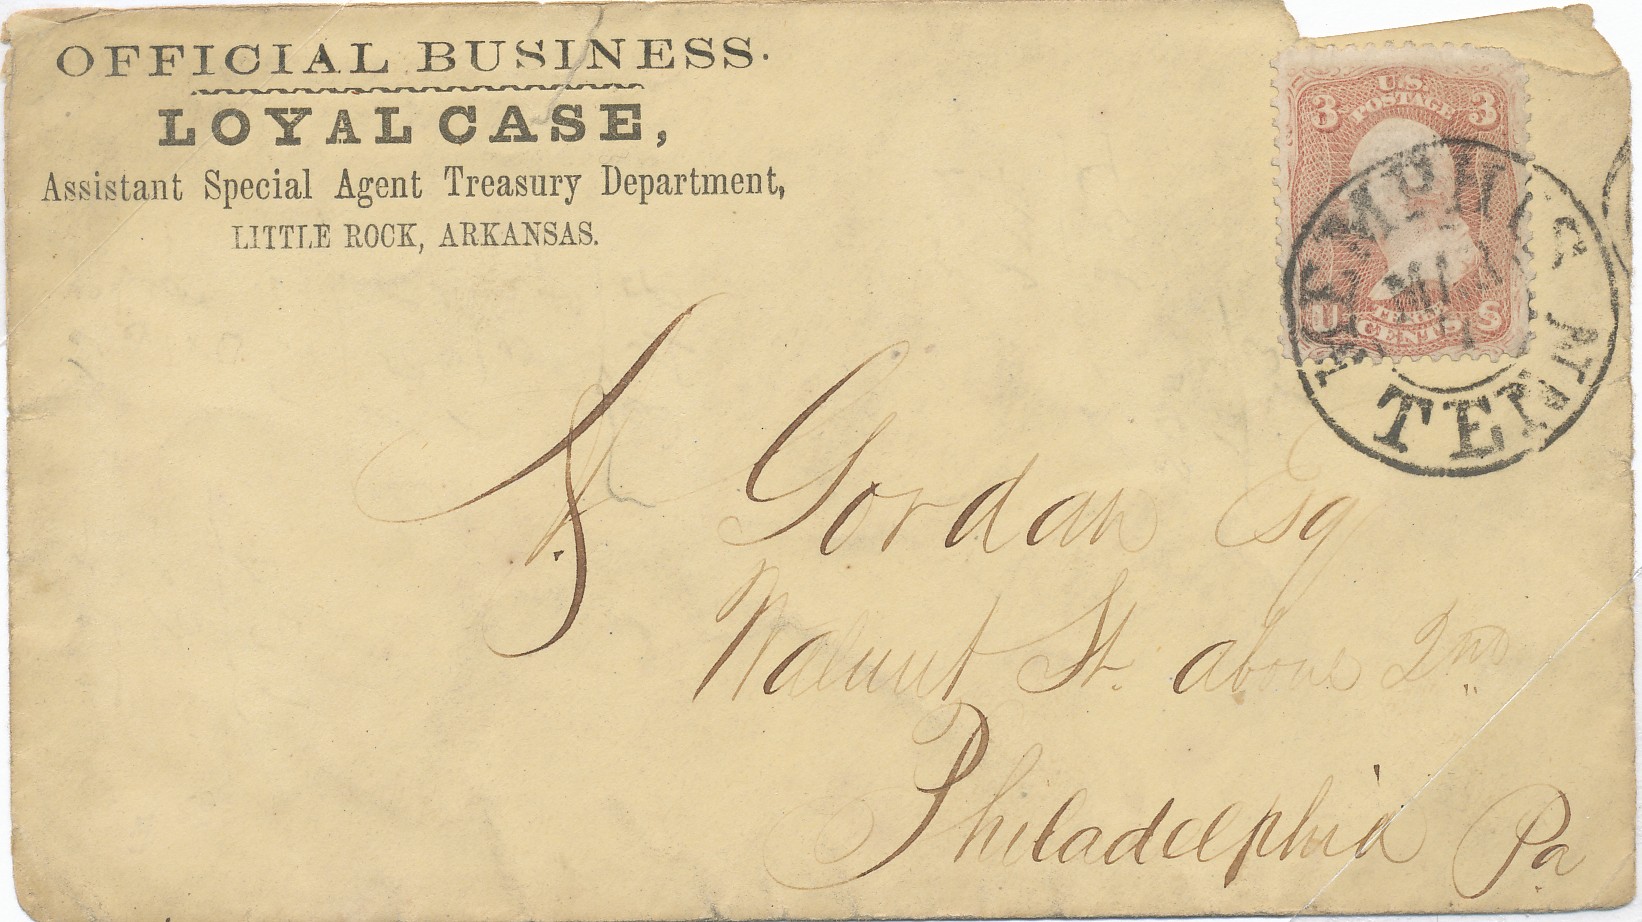 OFFICIAL BUSINESS.
LOYAL CASE,
Assistant Special Agent Treasury Department,
LITTLE ROCK, ARKANSAS.
3 U.S. 3
POSTAGE
U THREE S
CENTS
MEMPHIS
MAR
TEN
Gordan Esq
Walnut St. above 2nd
Philadelphia Pa